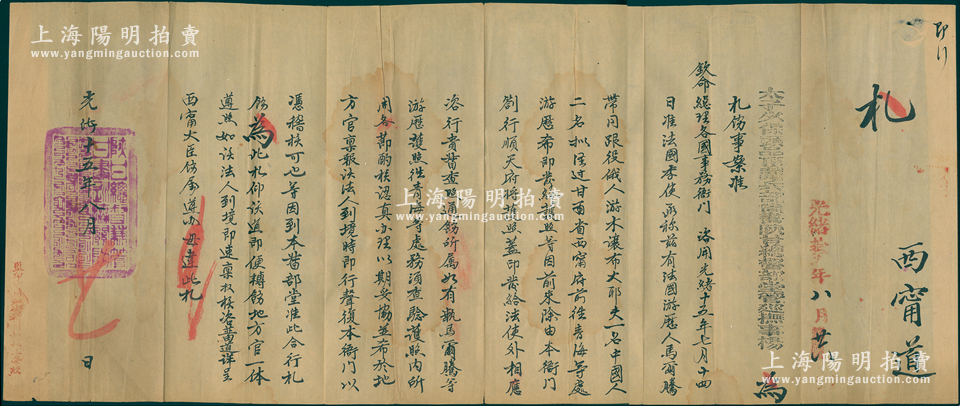 即行
札
西甯道
光緒拾 年八月廿
太子少保 為
札飭事案准
欽命總理各國事務衙門 洛開光緒十五年七月十四
日准法國李使函称茲有法國游歷人馬爾騰
帶同跟役俄人游木讓布大耶夫一名中國人
二名拟経过甘肅省西甯府前徃青海等處
游歷希即發給護照等因前來除由本衙門
劄行順天府將護照蓋印發給法使外相應
洛行貴督查照通飭所属如有執馬爾騰等
游歷護照徃青海等處務須查驗護照內所
開各節酌核認真办理以期妥協並希於地
方官禀報该法人到境時即行聲復本衙門以
憑稽核可也等因到本督部堂准此合行札
飭為此札仰该道即便轉飭地方官一体
遵照如该法人到境即速禀 核洛 呈
西甯大臣 遵 毋違此札
光緒十五年八月 日
上海陽明拍賣
www.yangmingauction.com
上海陽明拍賣
www.yangmingauction.com
上海陽明拍賣
www.yangmingauction.com
上海陽明拍賣
www.yangmingauction.com
上海陽明拍賣
www.yangmingauction.com